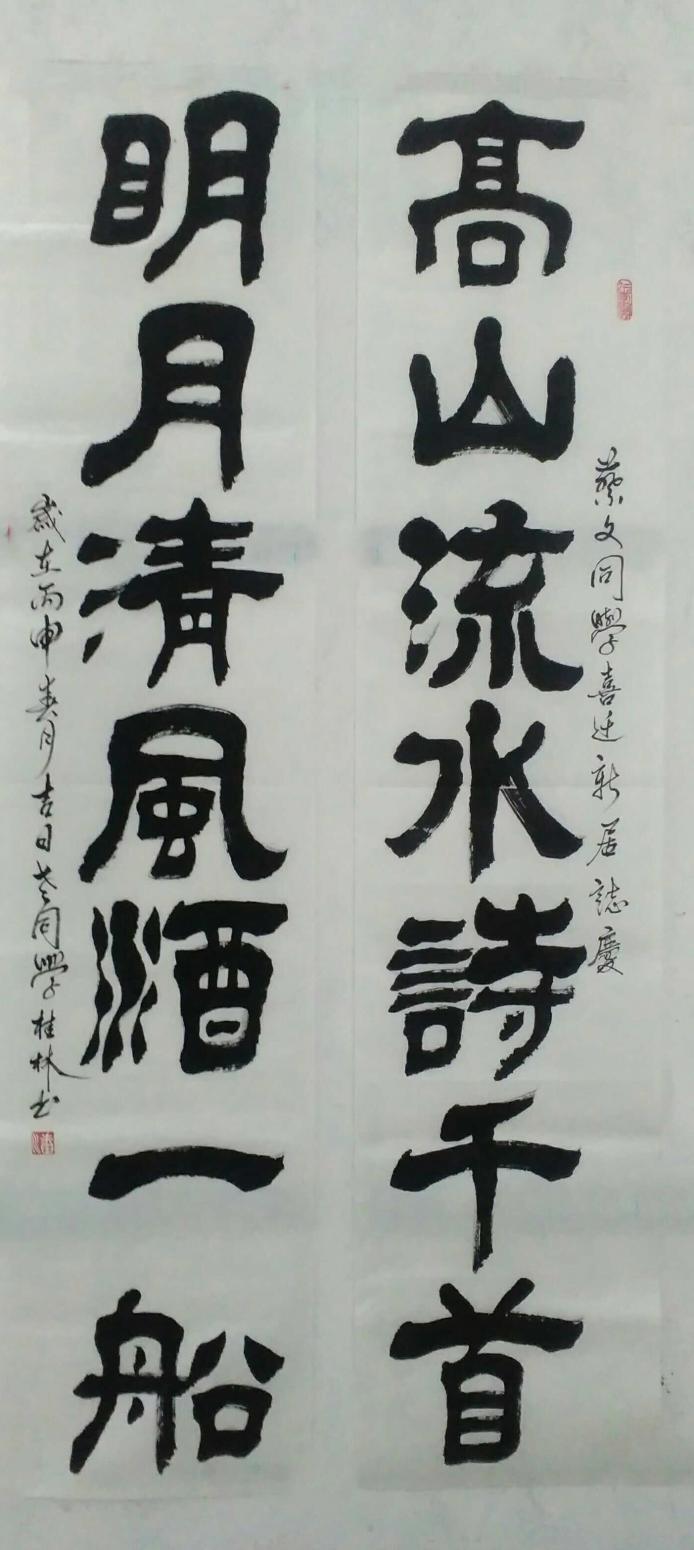 蔡文同學喜迁新居誌慶
高山流水詩千首
明月清風酒一船
歲在丙申葵月吉日老同學桂林书